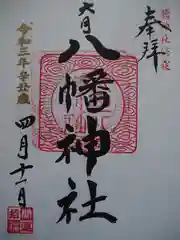 奉拝
六月
八幡神社
令和三年辛丑歳
四月十一日